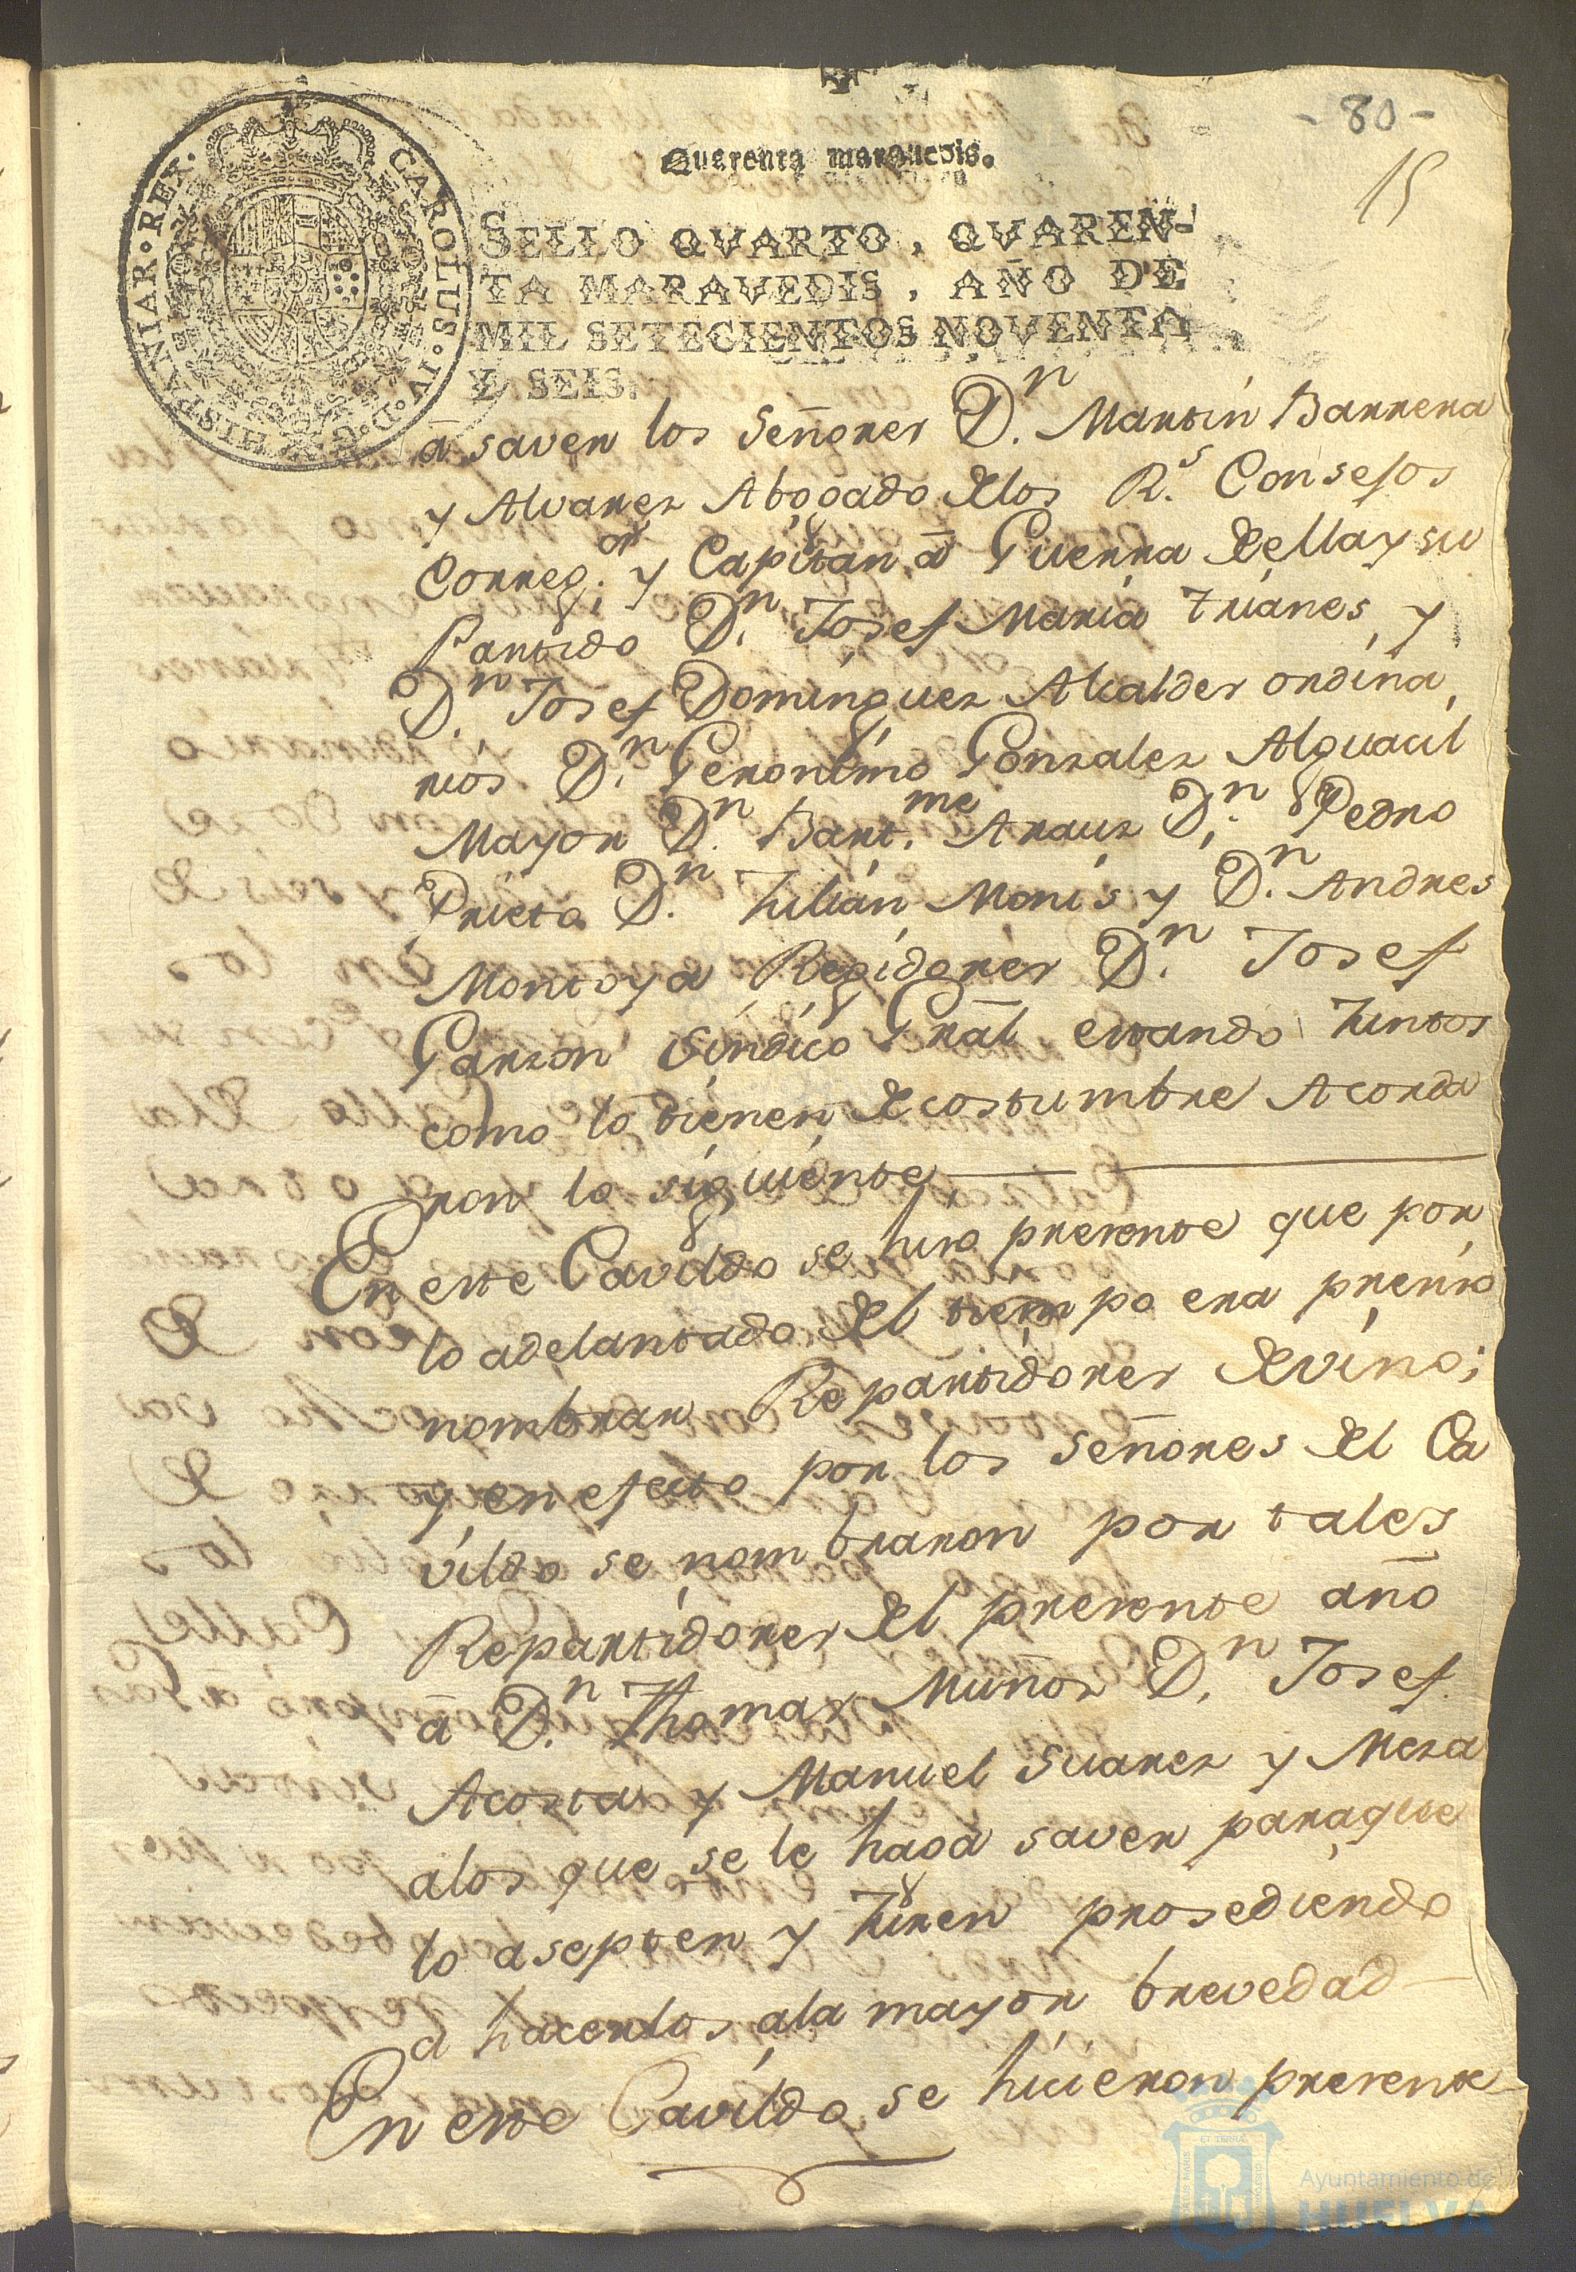 - 80 -
15
Quarenta marauedis.
CAROLUS • IV • D • G • HISPANIAR • REX •
SELLO QVARTO, QVAREN-
TA MARAVEDIS, AÑO DE
MIL SETECIENTOS NOVENTA
Y SEIS.
â saver los Señores D.n Martin Barrera
y Alvarez Abogado delos R.s Consejos
Correg.or y Capitan â Guerra de ella y su
Partido D.n Josef Maria Trianes, y
D.n Josef Dominguez Alcaldes ordina,
rios D.n Geronimo Gonzalez Alguacil
Mayor D.n Bart.me Arauz D.n Pedro
Prieto D.n Julian Monis y D.n Andres
Montoya Regidores D.n Josef
Garzon Sindico Grâl estando Juntos
como lo tienen de costumbre Acorda
ron lo siguiente
En este Cavildo se hizo presente que por
lo adelantado del tiempo era preciso
nombrar Repartidores de vino;
y en efecto por los Señores del Ca
vildo se nombraron por tales
Repartidores del presente año
â D.n Thomas Muñoz D.n Josef
Acosta y Manuel Suarez y Meza
alos que se le haga saver paraque
lo asepten y Juren prosediendo
a hacerlos ala mayor brevedad
En este Cavildo se hicieron presente
Ayuntamiento de
HUELVA